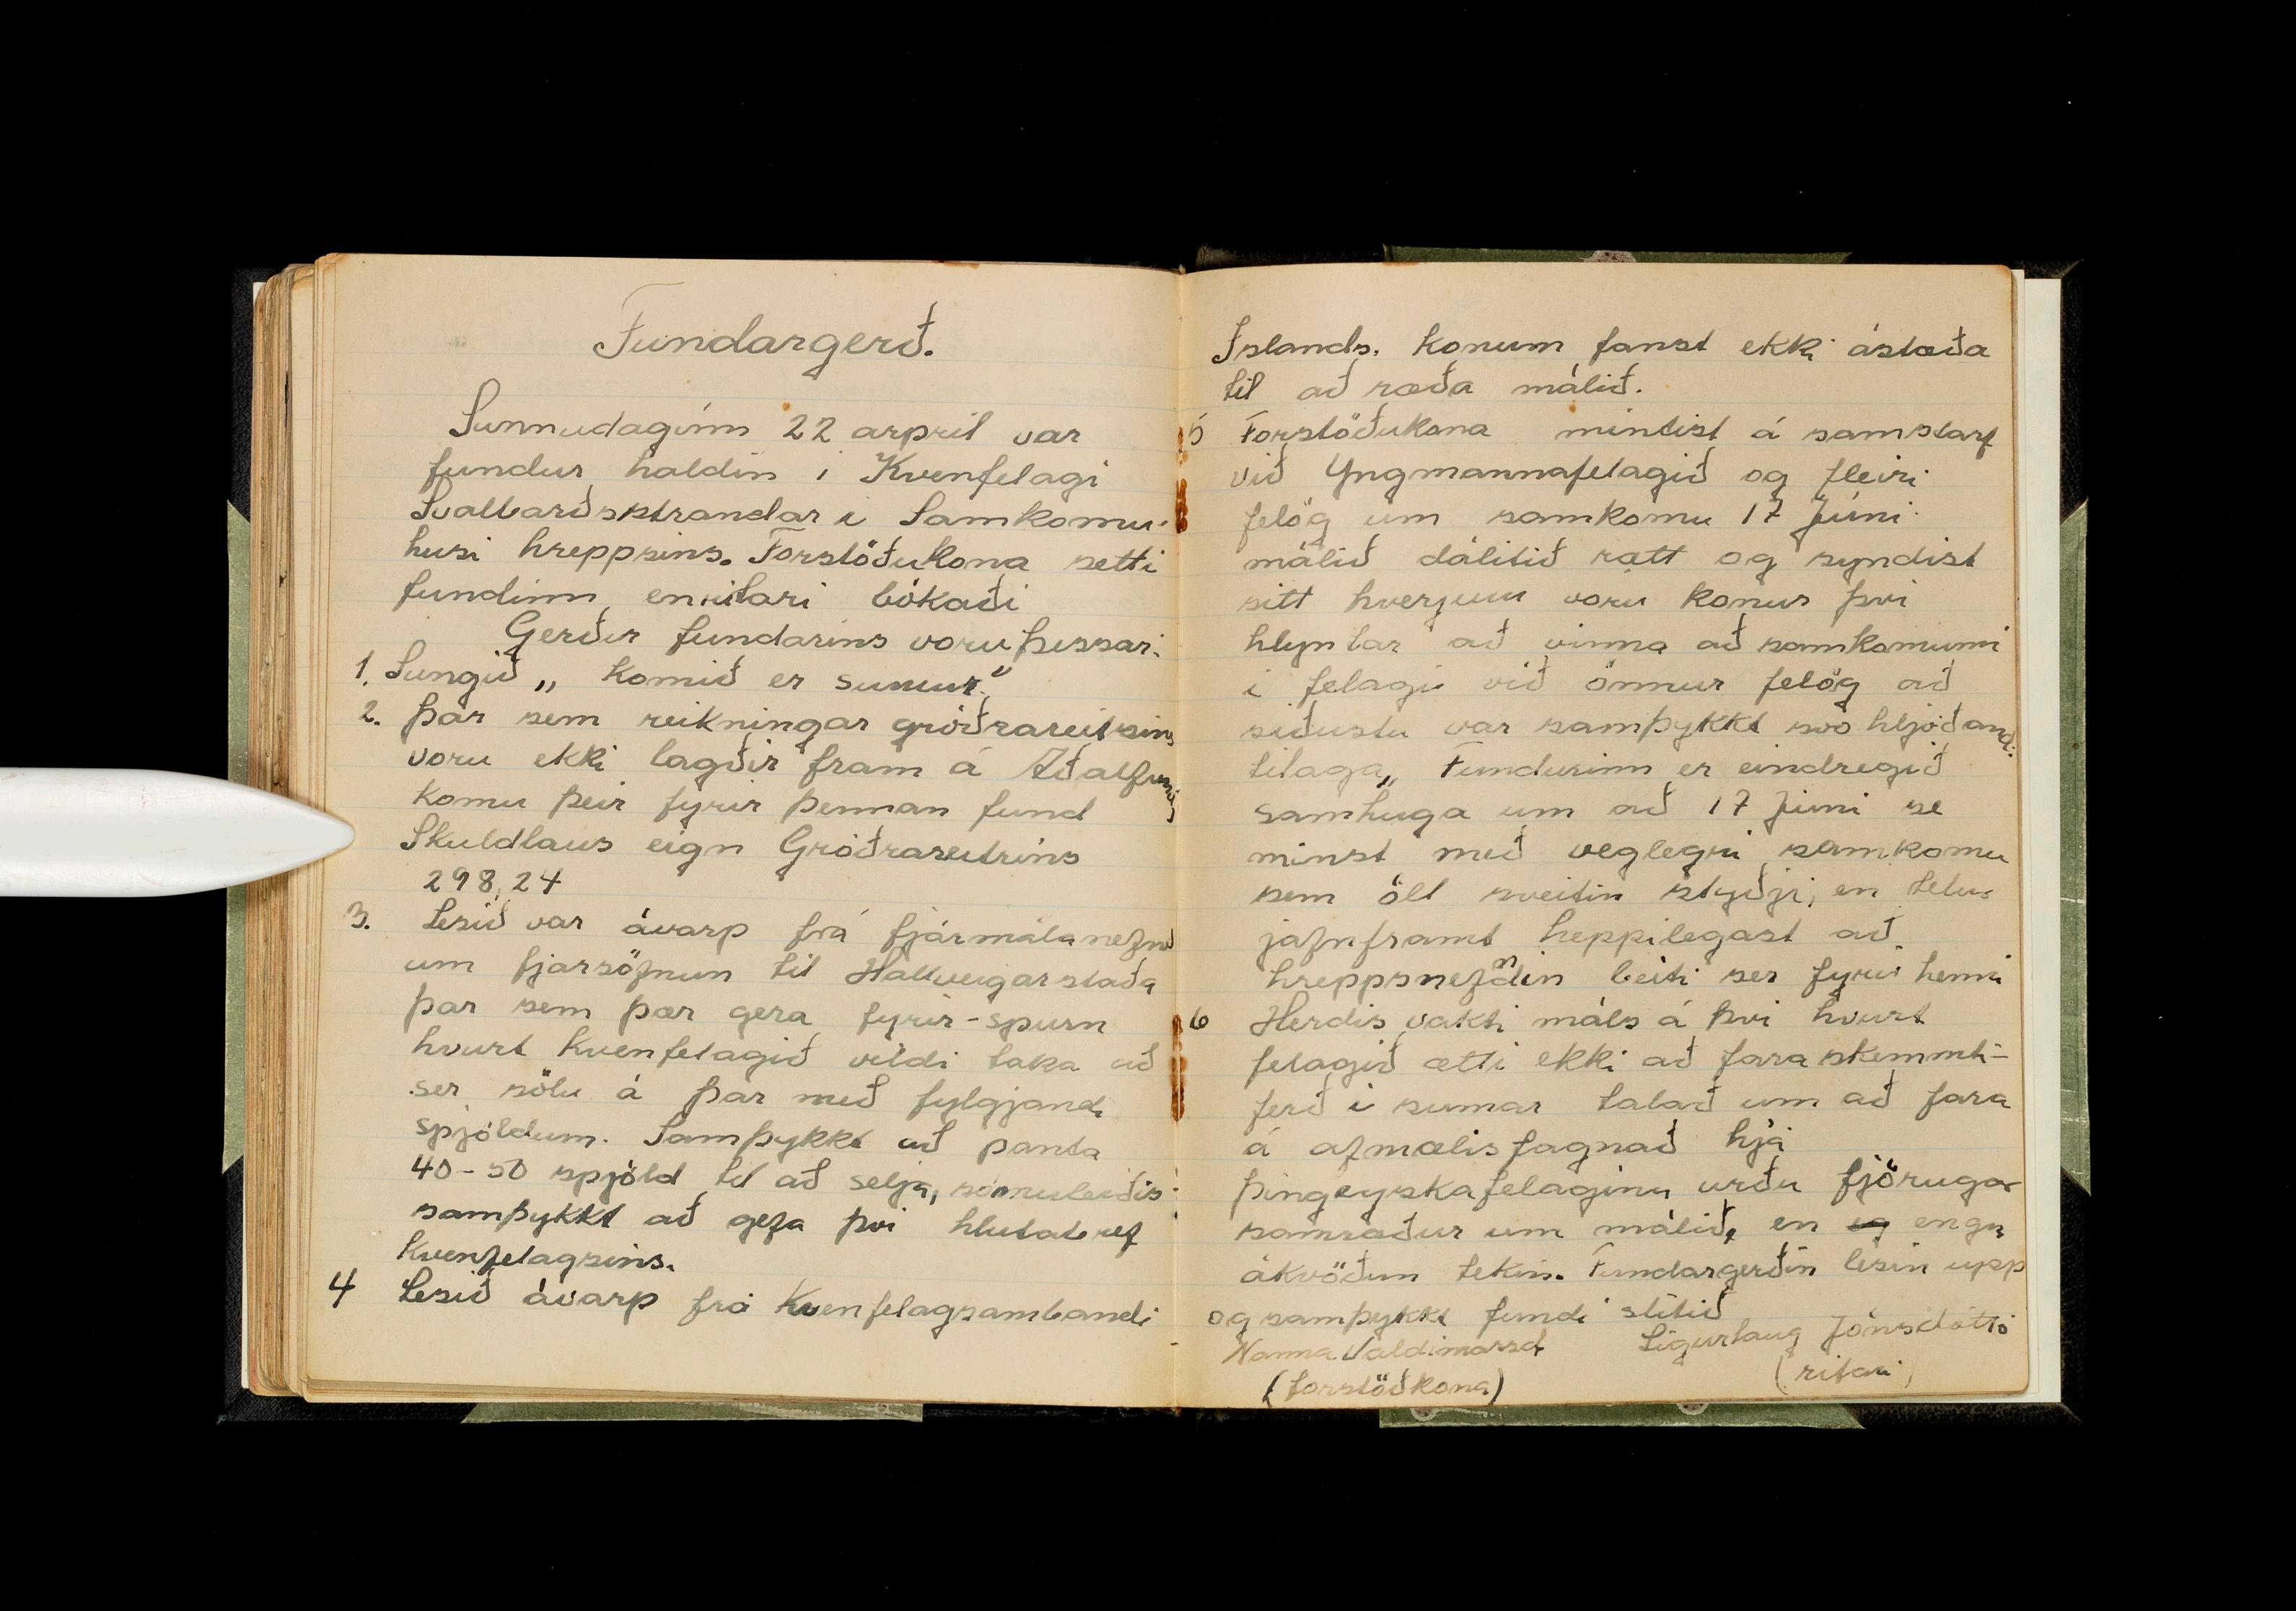 Fundargerð.
Sunnudaginn 22 arpril var
fundur haldin i Kvenfelagi
Svalbarðsstrandar i Samkomu-
husi hreppsins. Forstöðukona setti
fundinn, en ritari bókaði
Gerðir fundarins voru þessar:
1. Sungið „ Komið er sumur."
2. Þar sem reikningar gróðrareitsins
voru ekki lagðir fram á Aðalfundi
komu þeir fyrir þennan fund
Skuldlaus eign Gróðrareitrins
298,24
3. Lesið var ávarp frá fjármálanefnd
um fjarsöfnun til Hallveigarstaða
þar sem þær gera fyrir-spurn
hvurt Kvenfelagið vildi taka að
ser sölu á þar með fylgjandi
spjöldum. Samþykkt að panta
40-50 spjöld til að selja, sömuleiðis
samþykkt að gefa þvi hlutabref
Kvenfelagsins.
4 Lesið ávarp frá Kvenfelagsambandi
Íslands. Konum fanst ekki ástæða
til að ræða málið.
5 Forstöðukona mintist á samstarf
við Yngmannafelagið og fleiri
felög um samkomu 17 Júni
málið dálitið rætt og syndist
sitt hverjum voru konur þvi
hlyntar að vinna að samkomunni
i felagi við önnur felög að
siðustu var samþykkt svo hljóðandi:
tilaga „ Fundurinn er eindregið
samhuga um að 17 Júni se
minst með veglegri samkomu
sem öll sveitin styðji, en telur
jafnframt heppilegast að
hreppsnefndin beiti ser fyrir henni
6 Herdis vakti máls á þvi hvurt
felagið ætti ekki að fara skemmti-
ferð i sumar talað um að fara
á afmælisfagnað hjá
þingeyskafelaginu urðu fjörugar
samræður um málið, en eg engn
ákvöðun tekin. Fundargerðin lesin upp
og samþykkt fundi slitið
Nanna Valdimarsd Sigurlaug Jónsdóttir
(forstöðkona) (ritari)